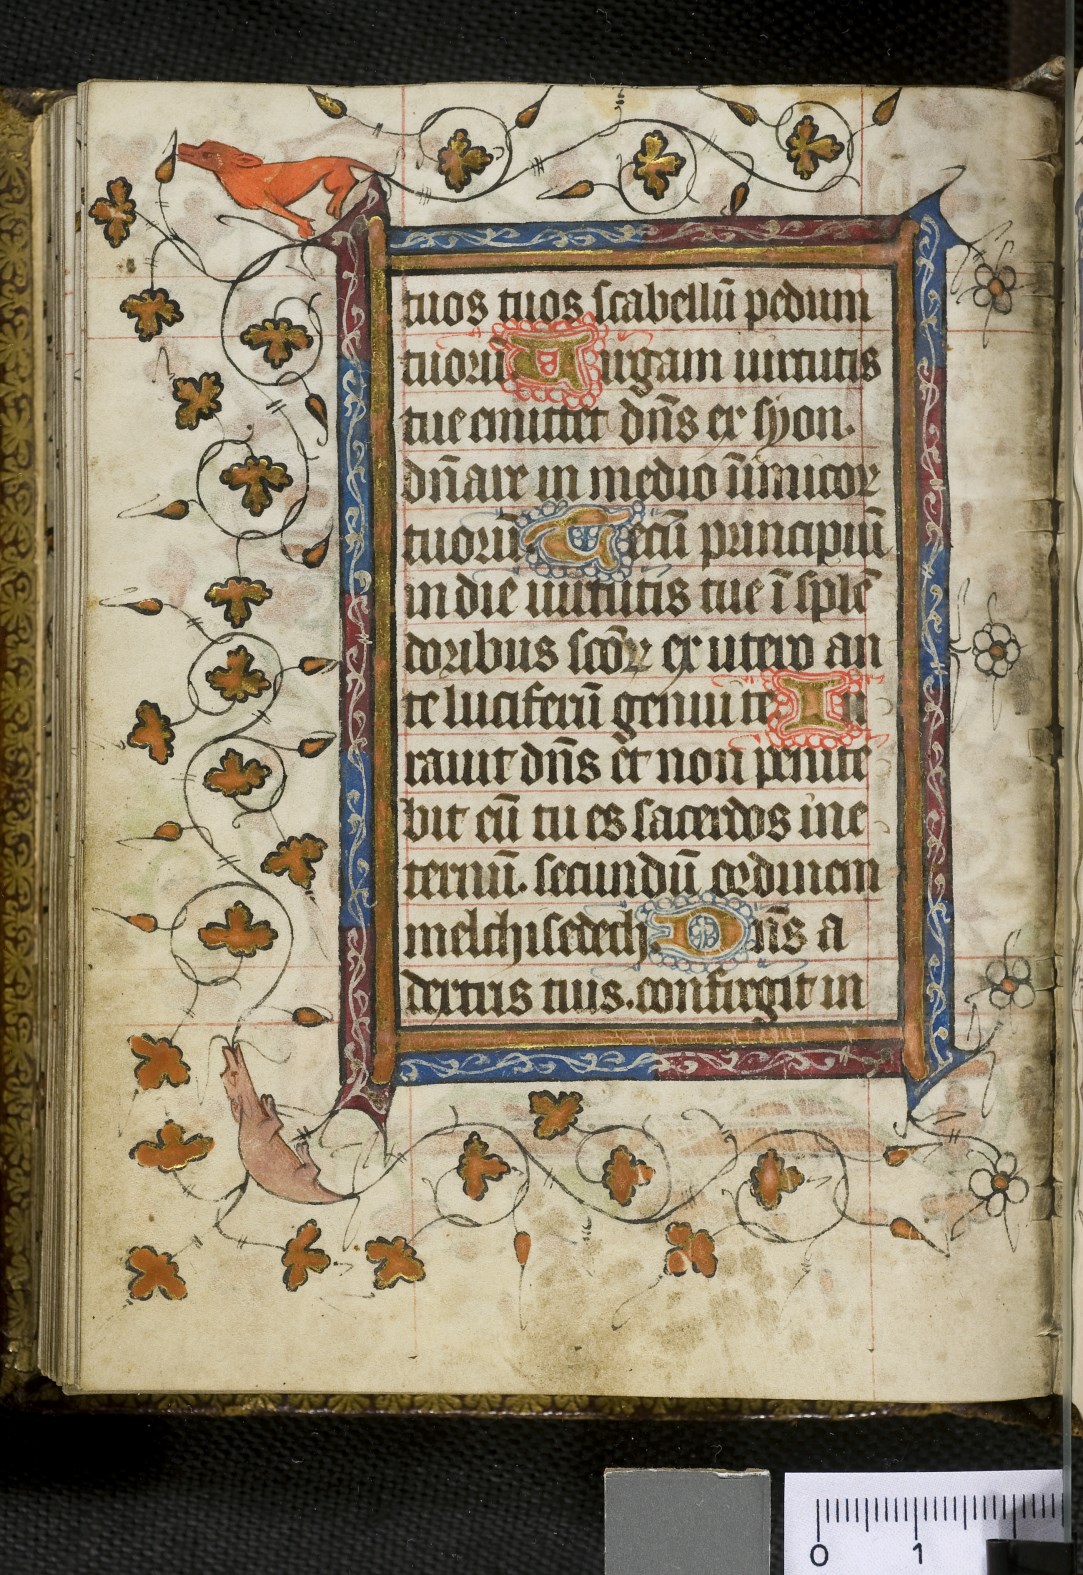 tuos tuos scabellū pedum
tuorū Uirgam uirtutis
tue emittet dn̄s ex syon.
dn̄are in medio īimicor
tuorū. Tecū principiū
in die uirtutis tue ī splē
doribus sc̄oꝝ ex utero an
te luciferū genui te Iu
rauit dn̄s et non penite
bit eū tu es sacerdos in e
ternū. secundū ordinem
melchisedech. Dn̄s a
dextris tuis. confregit in
0 1